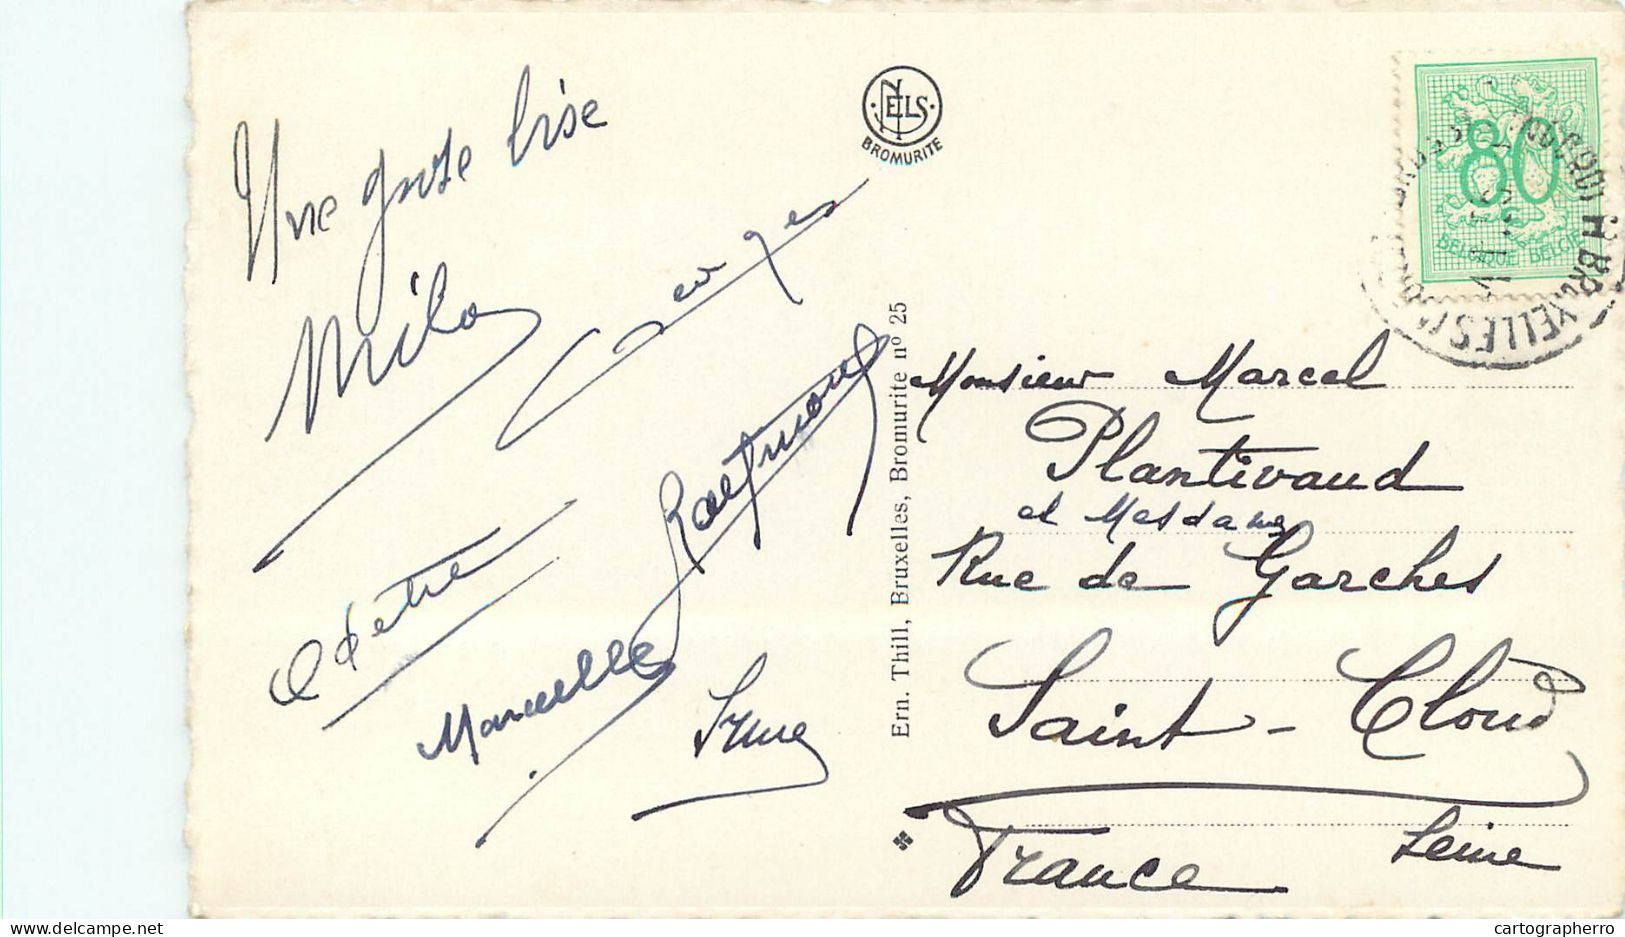 Une grosse bise
Milo
Georges
Raymond
Odette
Marcelle
Irène
NELS
BROMURITE
Ern. Thill, Bruxelles, Bromurite nº 25
80
BELGIQUE BELGIE
BRUXELLES
Monsieur Marcel
Plantivaud
et Mesdames
Rue de Garches
Saint-Cloud
Seine
France
cartographerro